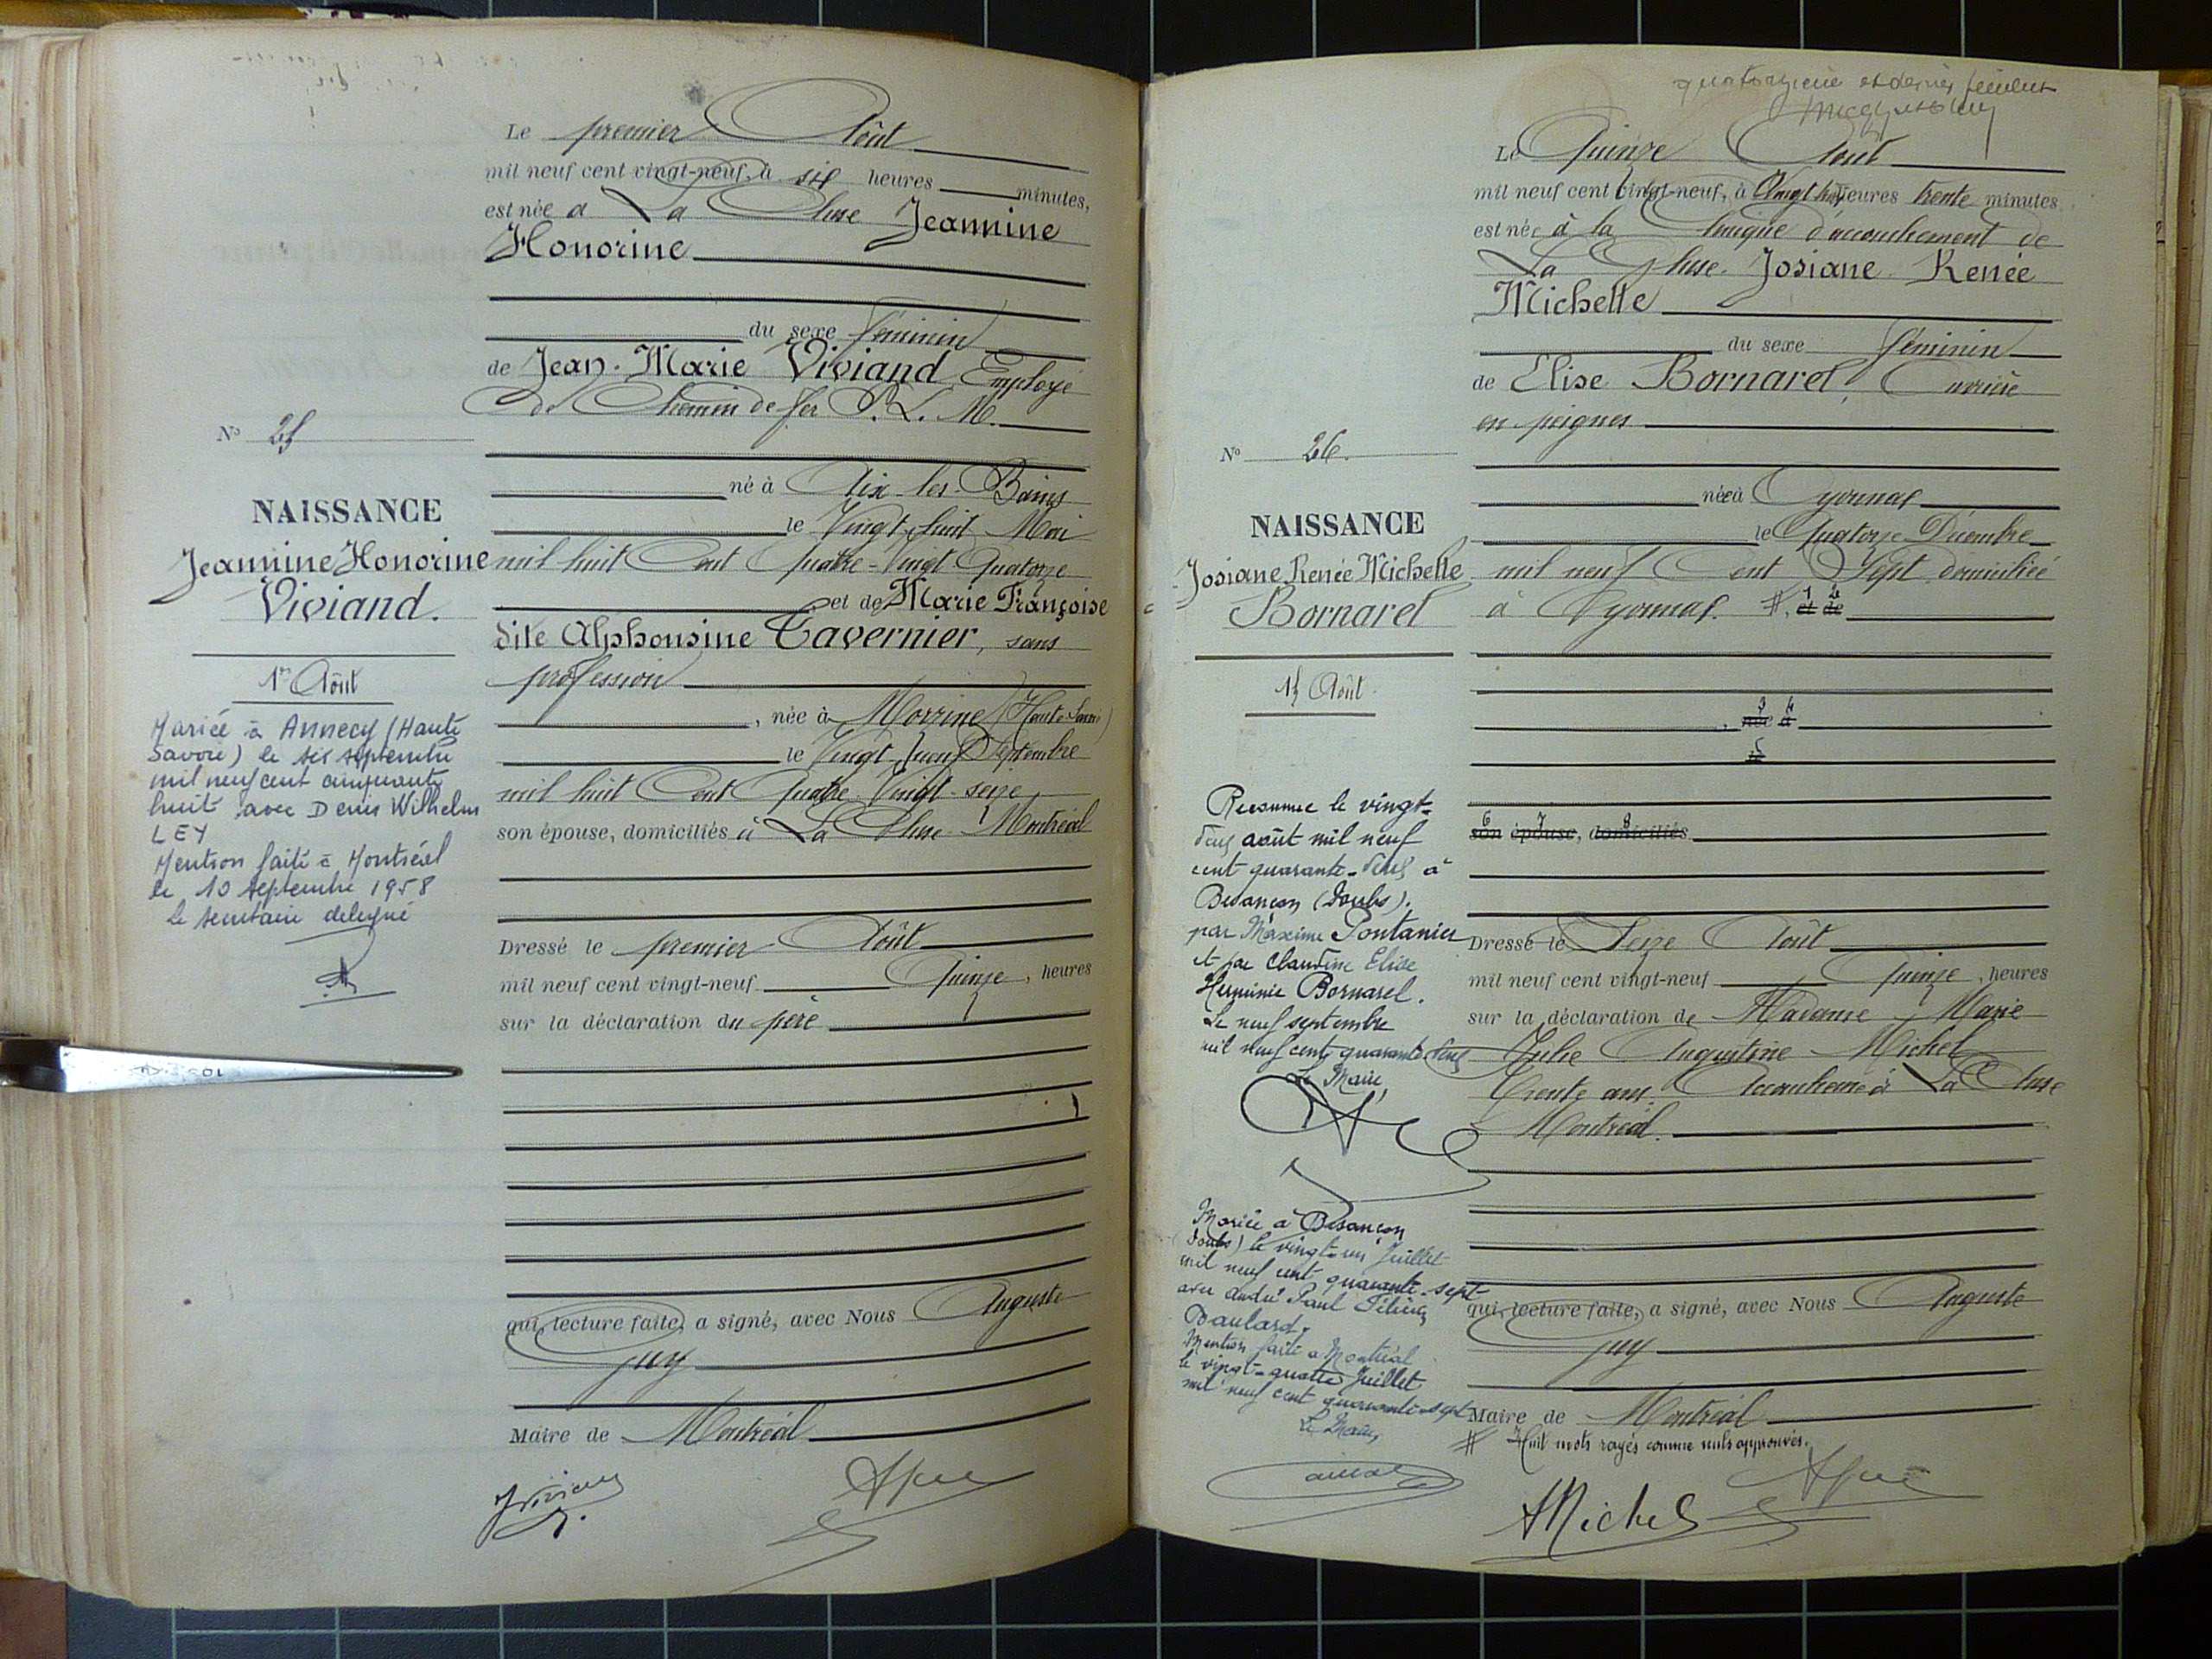 Le premier Août
mil neuf cent vingt-neuf, à six heures minutes,
est née à La Cluse Jeannine
Honorine
du sexe féminin
de Jean-Marie Viviand, Employé
de Chemin de fer P.L.M.
né à Aix-les-Bains
le Vingt-huit Mai
mil huit Cent Quatre-Vingt Quatorze
et de Marie Françoise
dite Alphonsine Tavernier, sans
profession
, née à Morzine (Haute-Savoie)
le Vingt-neuf Septembre
mil huit Cent Quatre Vingt-seize
son épouse, domiciliés à La Cluse Montréal
Dressé le premier Août
mil neuf cent vingt-neuf Quinze, heures
sur la déclaration du père
qui, lecture faite, a signé, avec Nous Auguste
Guy
Maire de Montréal
Nº 25
NAISSANCE
Jeannine Honorine
Viviand.
1er Août
Mariée à Annecy (Haute
Savoie) le six septembre
mil neuf cent cinquante
huit avec Denis Wilhelm
LEY
Mention faite à Montréal
le 10 septembre 1958
Le secrétaire délégué
quatorzième et dernier feuillet
Le Quinze Août
mil neuf cent vingt-neuf, à Vingt heures trente minutes
est née à la Clinique d'accouchement de
La Cluse. Josiane Renée
Michelle
du sexe féminin
de Elise Bornarel, Ouvrière
en peignes
née à Oyonnax
le Quatorze Décembre
mil neuf Cent Sept domiciliée
à Oyonnax. #. 1 et 2 de
3 née 4 à
5 le
6 son 7 épouse, 8 domiciliés
Dressé le Seize Août
mil neuf cent vingt-neuf Quinze, heures
sur la déclaration de Madame Marie
Julie Augustine Michel
trente ans. Accoucheuse à La Cluse
Montréal.
qui, lecture faite, a signé, avec Nous Auguste
Guy
Maire de Montréal
# Huit mots rayés comme nuls approuvés.
AMichel
Nº 26.
NAISSANCE
Josiane Renée Michelle
Bornarel
15 Août.
Reconnue le vingt-
deux août mil neuf
cent quarante-deux à
Besançon (Doubs).
par Maxime Pontanier
et par Claudine Elise
Herminie Bornarel.
Le neuf septembre
mil neuf cent quarante deux
Le Maire,
Mariée à Besançon
(Doubs) le vingt-un Juillet
mil neuf cent quarante-sept
avec André Paul
Daulard.
Mention faite à Montréal
le vingt-quatre Juillet
mil neuf cent quarante-sept
Le Maire,